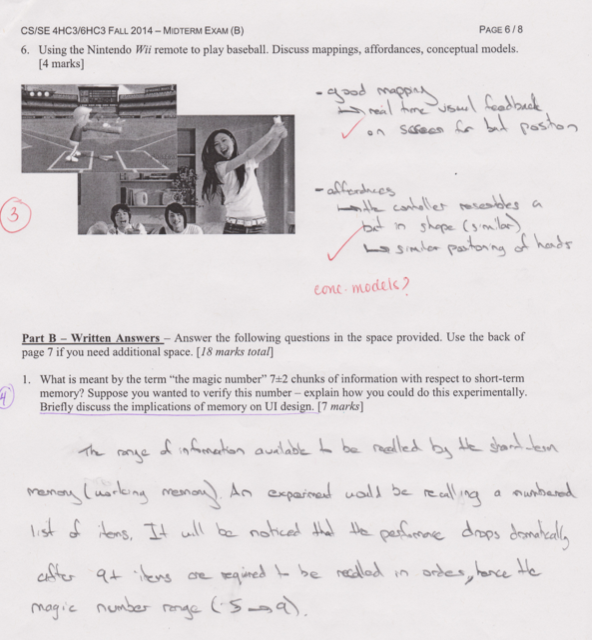 CS/SE 4HC3/6HC3 FALL 2014 – MIDTERM EXAM (B)
PAGE 6 / 8
6. Using the Nintendo Wii remote to play baseball. Discuss mappings, affordances, conceptual models.
[4 marks]
- good mapping
→ real time visual feedback
on screen for bat position
3
- affordances
→ the controller resembles a
bat in shape (similar)
↳ similar positioning of hands
conc. models?
Part B – Written Answers – Answer the following questions in the space provided. Use the back of
page 7 if you need additional space. [18 marks total]
1. What is meant by the term “the magic number” 7±2 chunks of information with respect to short-term
memory? Suppose you wanted to verify this number – explain how you could do this experimentally.
4
Briefly discuss the implications of memory on UI design. [7 marks]
The range of information available to be recalled by the short-term
memory (working memory). An experiment would be recalling a numbered
list of items. It will be noticed that the performance drops dramatically
after 9+ items are required to be recalled in order, hence the
magic number range (5 → 9).